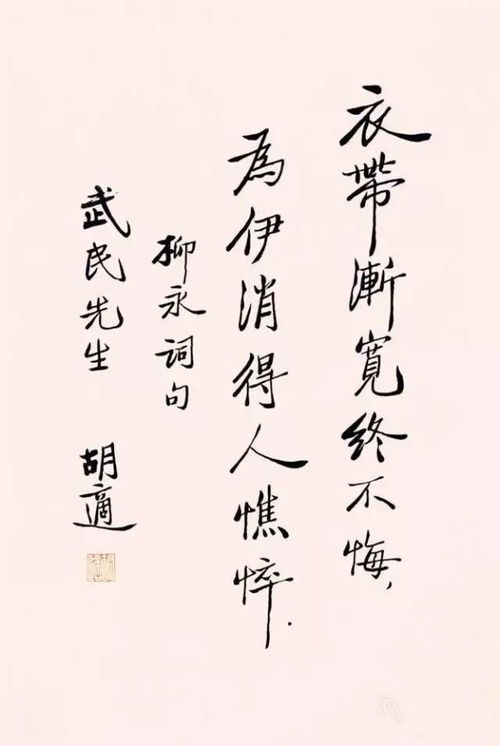 衣帶漸寬終不悔，
為伊消得人憔悴．
柳永词句
武民先生
胡適